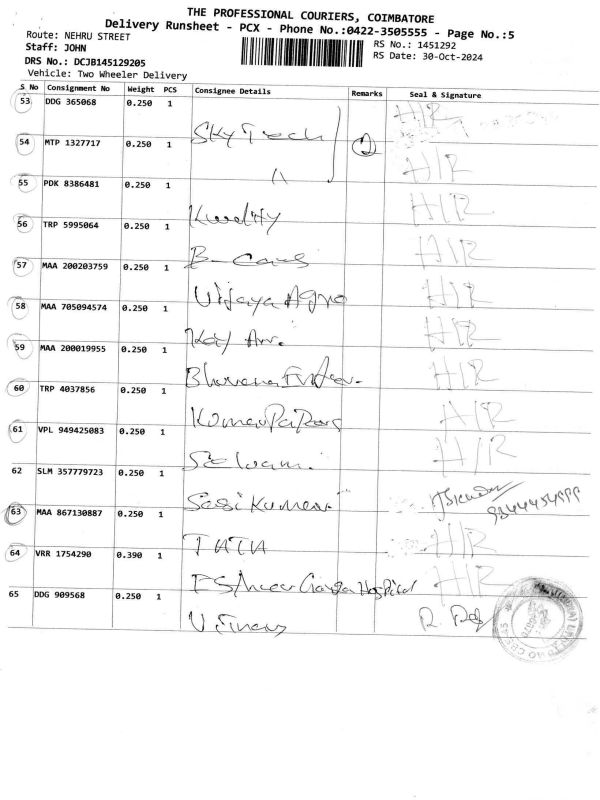 THE PROFESSIONAL COURIERS, COIMBATORE
Delivery Runsheet - PCX - Phone No.:0422-3505555 - Page No.:5
Route: NEHRU STREET
RS No.: 1451292
Staff: JOHN
RS Date: 30-Oct-2024
DRS No.: DCJB145129205
Vehicle: Two Wheeler Delivery
S No Consignment No Weight PCS Consignee Details Remarks Seal & Signature
53 DDG 365068 0.250 1 H/R
Sky Tech 2
54 MTP 1327717 0.250 1 H/R
55 PDK 8386481 0.250 1 H/R
56 TRP 5995064 0.250 1 H/R
57 MAA 200203759 0.250 1 H/R
Vijaya Agro
58 MAA 705094574 0.250 1 H/R
59 MAA 200019955 0.250 1 H/R
60 TRP 4037856 0.250 1 H/R
61 VPL 949425083 0.250 1 H/R
Selvam
62 SLM 357779723 0.250 1
Sasi Kumar
63 MAA 867130887 0.250 1 H/R
TATA
64 VRR 1754290 0.390 1 H/R
Ganga Hospital
65 DDG 909568 0.250 1